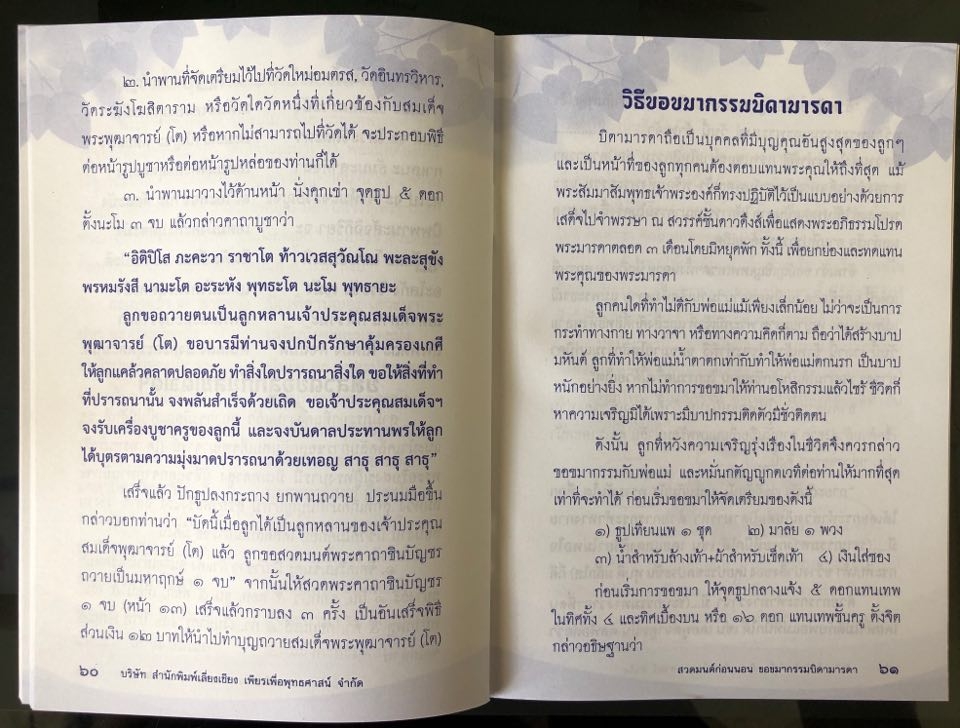 ๒. นำพานที่จัดเตรียมไว้ไปที่วัดใหม่อมตรส, วัดอินทรวิหาร,
วัดระฆังโฆสิตาราม หรือวัดใดวัดหนึ่งที่เกี่ยวข้องกับสมเด็จ
พระพุฒาจารย์ (โต) หรือหากไม่สามารถไปที่วัดได้ จะประกอบพิธี
ต่อหน้ารูปบูชาหรือต่อหน้ารูปหล่อของท่านก็ได้
๓. นำพานมาวางไว้ด้านหน้า นั่งคุกเข่า จุดธูป ๕ ดอก
ตั้งนะโม ๓ จบ แล้วกล่าวคาถาบูชาว่า
"อิติปิโส ภะคะวา ราชาโต ท้าวเวสสุวัณโณ พะละสุขัง
พรหมรังสี นามะโต อะระหัง พุทธะโต นะโม พุทธายะ
ลูกขอถวายตนเป็นลูกหลานเจ้าประคุณสมเด็จพระ
พุฒาจารย์ (โต) ขอบารมีท่านจงปกปักรักษาคุ้มครองเกศี
ให้ลูกแคล้วคลาดปลอดภัย ทำสิ่งใดปรารถนาสิ่งใด ขอให้สิ่งที่ทำ
ที่ปรารถนานั้น จงพลันสำเร็จด้วยเถิด ขอเจ้าประคุณสมเด็จฯ
จงรับเครื่องบูชาครูของลูกนี้ และจงบันดาลประทานพรให้ลูก
ได้บุตรตามความมุ่งมาดปรารถนาด้วยเทอญ สาธุ สาธุ สาธุ"
เสร็จแล้ว ปักธูปลงกระถาง ยกพานถวาย ประนมมือขึ้น
กล่าวบอกท่านว่า "บัดนี้เมื่อลูกได้เป็นลูกหลานของเจ้าประคุณ
สมเด็จพุฒาจารย์ (โต) แล้ว ลูกขอสวดมนต์พระคาถาชินบัญชร
ถวายเป็นมหาฤกษ์ ๑ จบ" จากนั้นให้สวดพระคาถาชินบัญชร
๑ จบ (หน้า ๑๓) เสร็จแล้วกราบลง ๓ ครั้ง เป็นอันเสร็จพิธี
ส่วนเงิน ๑๒ บาทให้นำไปทำบุญถวายสมเด็จพระพุฒาจารย์ (โต)
๖๐ บริษัท สำนักพิมพ์เลี่ยงเชียง เพียรเพื่อพุทธศาสน์ จำกัด
วิธีขอขมากรรมบิดามารดา
บิดามารดาถือเป็นบุคคลที่มีบุญคุณอันสูงสุดของลูกๆ
และเป็นหน้าที่ของลูกทุกคนต้องตอบแทนพระคุณให้ถึงที่สุด แม้
พระสัมมาสัมพุทธเจ้าพระองค์ก็ทรงปฏิบัติไว้เป็นแบบอย่างด้วยการ
เสด็จไปจำพรรษา ณ สวรรค์ชั้นดาวดึงส์เพื่อแสดงพระอภิธรรมโปรด
พระมารดาตลอด ๓ เดือนโดยมิหยุดพัก ทั้งนี้ เพื่อยกย่องและทดแทน
พระคุณของพระมารดา
ลูกคนใดที่ทำไม่ดีกับพ่อแม่แม้เพียงเล็กน้อย ไม่ว่าจะเป็นการ
กระทำทางกาย ทางวาจา หรือทางความคิดก็ตาม ถือว่าได้สร้างบาป
มหันต์ ลูกที่ทำให้พ่อแม่น้ำตาตกเท่ากับทำให้พ่อแม่ตกนรก เป็นบาป
หนักอย่างยิ่ง หากไม่ทำการขอขมาให้ท่านอโหสิกรรมแล้วไซร้ ชีวิตก็
หาความเจริญมิได้เพราะมีบาปกรรมติดตัวมีชั่วติดตน
ดังนั้น ลูกที่หวังความเจริญรุ่งเรืองในชีวิตจึงควรกล่าว
ขอขมากรรมกับพ่อแม่ และหมั่นกตัญญูกตเวทีต่อท่านให้มากที่สุด
เท่าที่จะทำได้ ก่อนเริ่มขอขมาให้จัดเตรียมของดังนี้
๑) ธูปเทียนแพ ๑ ชุด ๒) มาลัย ๑ พวง
๓) น้ำสำหรับล้างเท้า+ผ้าสำหรับเช็ดเท้า ๔) เงินใส่ซอง
ก่อนเริ่มการขอขมา ให้จุดธูปกลางแจ้ง ๕ ดอกแทนเทพ
ในทิศทั้ง ๔ และทิศเบื้องบน หรือ ๑๖ ดอก แทนเทพชั้นครู ตั้งจิต
กล่าวอธิษฐานว่า
สวดมนต์ก่อนนอน ขอขมากรรมบิดามารดา ๖๑